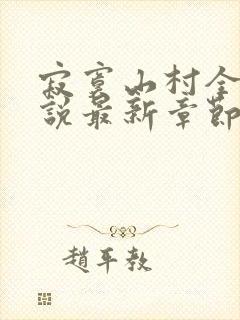 寂寞山村全
說最新章節
趙平教